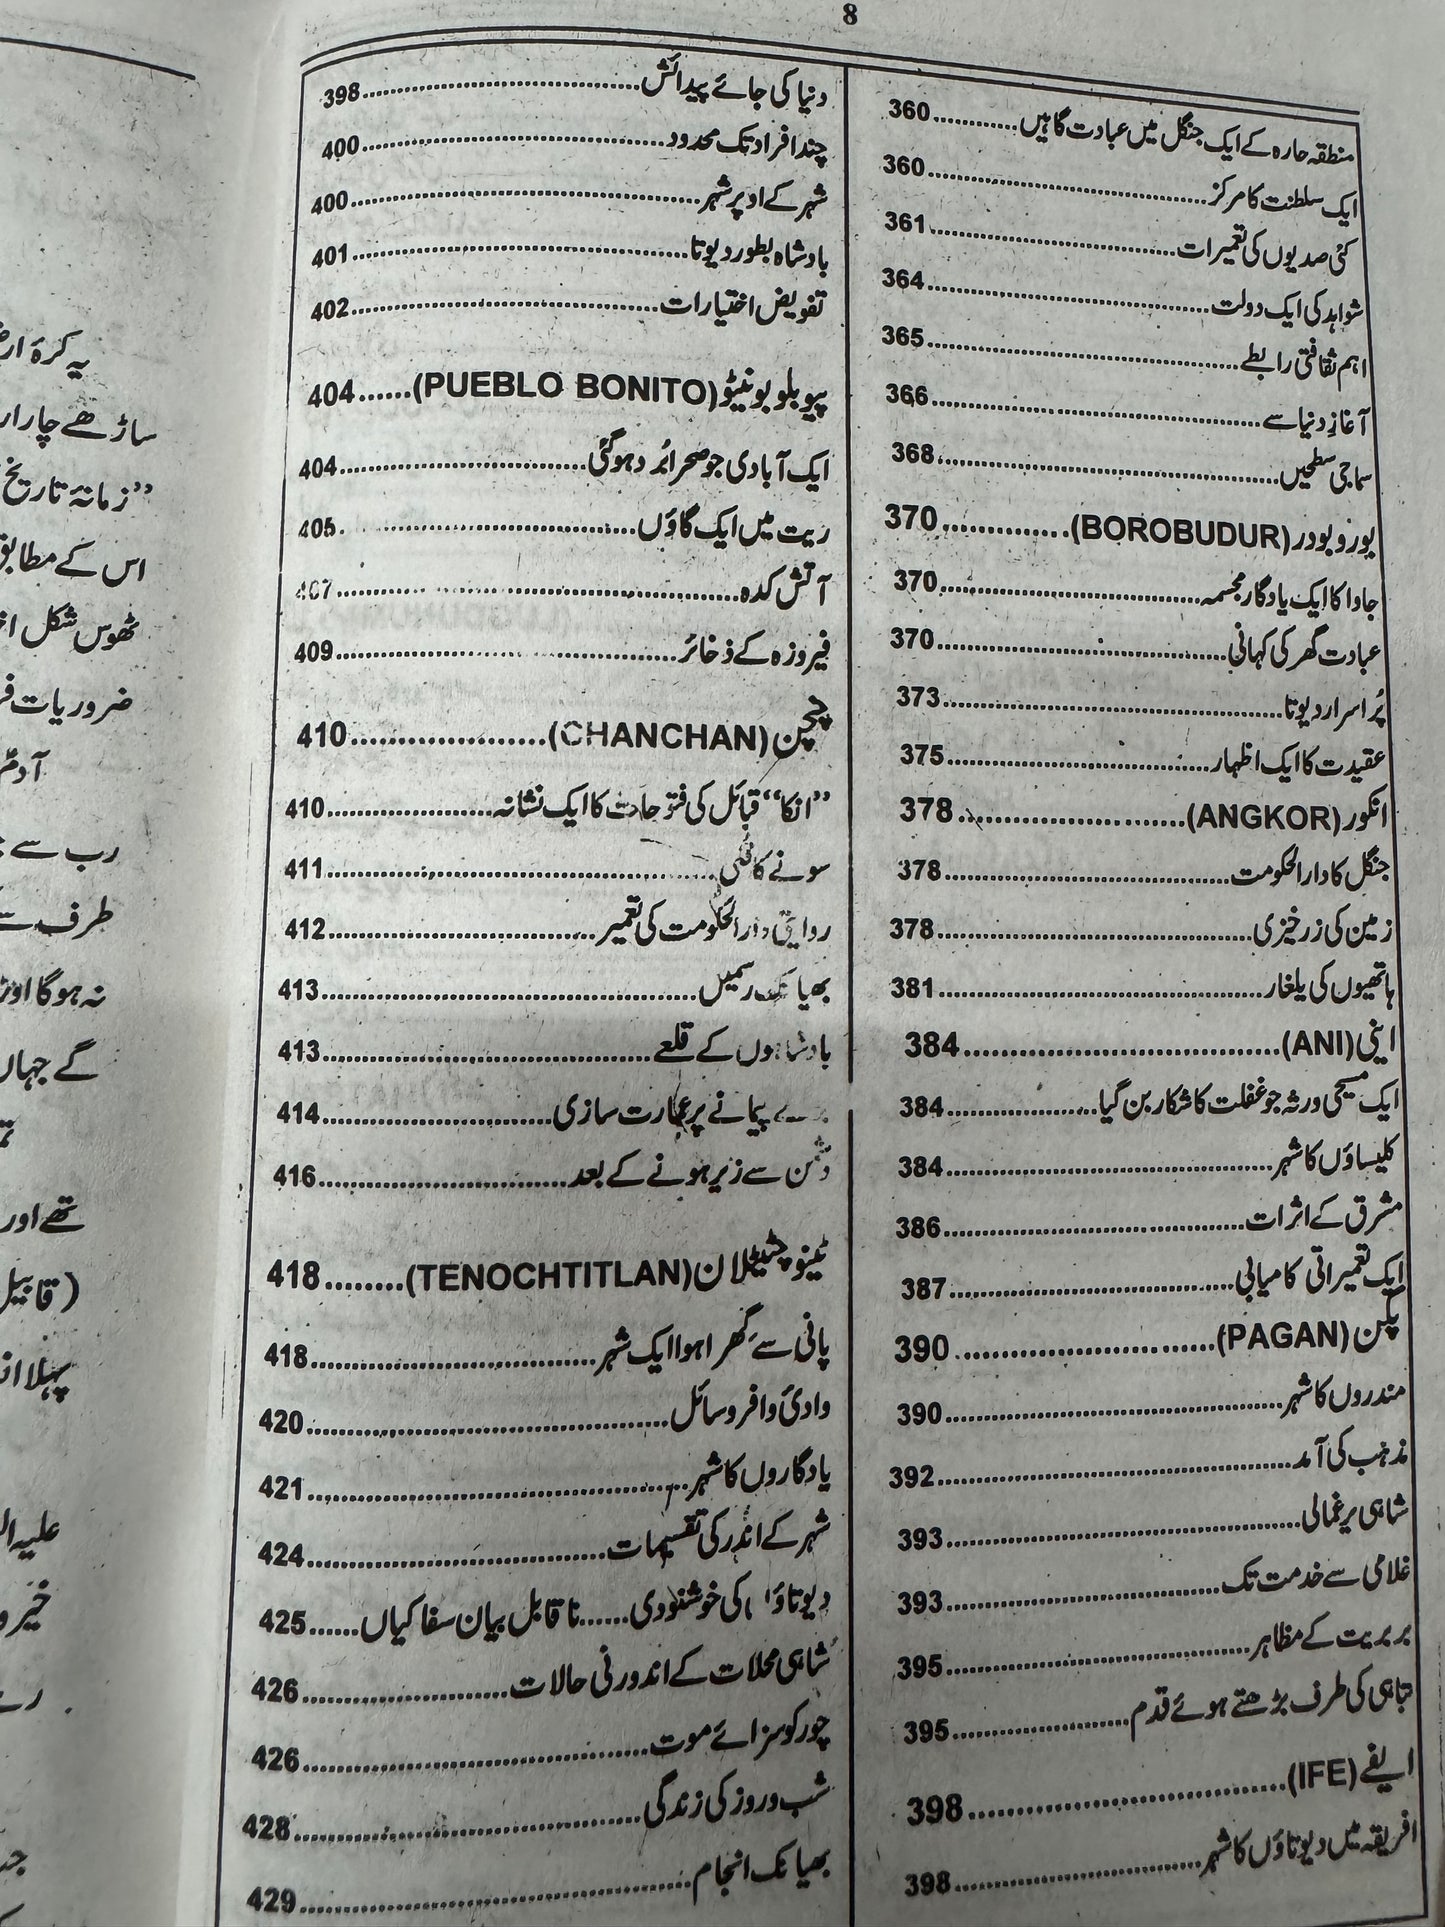 8
منطقہ حارہ کے ایک جنگل میں عبادت گاہیں............360
ایک سلطنت کا مرکز............360
کئی صدیوں کی تعمیرات............361
شواہد کی ایک دولت............364
اہم ثقافتی رابطے............365
آغازِ دنیا سے............366
سماجی سطحیں............368
بوروبودر (BOROBUDUR)............370
جاوا کا ایک یادگار مجسمہ............370
عبادت گھر کی کہانی............370
پُراسرار دیوتا............373
عقیدت کا ایک اظہار............375
انکور (ANGKOR)............378
جنگل کا دارالحکومت............378
زمین کی زرخیزی............378
ہاتھیوں کی یلغار............381
اینی (ANI)............384
ایک مسیحی ورثہ جو غفلت کا شکار بن گیا............384
کلیساؤں کا شہر............384
مشرق کے اثرات............386
ایک تعمیراتی کامیابی............387
پگن (PAGAN)............390
مندروں کا شہر............390
مذہب کی آمد............392
شاہی یرغمالی............393
غلامی سے خدمت تک............393
بربریت کے مظاہر............395
تباہی کی طرف بڑھتے ہوئے قدم............395
ایفے (IFE)............398
افریقہ میں دیوتاؤں کا شہر............398
دنیا کی جائے پیدائش............398
چند افراد تک محدود............400
شہر کے اوپر شہر............400
بادشاہ بطور دیوتا............401
تفویض اختیارات............402
پیوبلو بونیٹو (PUEBLO BONITO)......404
ایک آبادی جو صحرا بُرد ہوگئی............404
ریت میں ایک گاؤں............405
آتش کدہ............407
فیروزہ کے ذخائر............409
(CHANCHAN)............410
”انکا“ قبائل کی فتوحات کا ایک نشانہ............410
سونے کا............411
روایتی دارالحکومت کی تعمیر............412
بھیانک رسمیں............413
بادشاہوں کے قلعے............413
پیمانے پر عمارت سازی............414
دشمن سے زیر ہونے کے بعد............416
ٹینوچٹیٹلان (TENOCHTITLAN)........418
پانی سے گِھرا ہوا ایک شہر............418
وادیٔ وافر وسائل............420
یادگاروں کا شہر............421
شہر کے اندر کی تقسیمات............424
دیوتاؤں کی خوشنودی......ناقابل بیان سفاکیاں......425
شاہی محلات کے اندورنی حالات............426
چور کو سزائے موت............426
شب و روز کی زندگی............428
بھیانک انجام............429
یہ کرۂ
ساڑھے چار
”زمانۂ تاریخ
اس کے مطابق
ٹھوس شکل
ضروریات
رب سے
طرف
نہ ہوگا اور
گے جہاں
تھے اور
(قابیل
پہلا